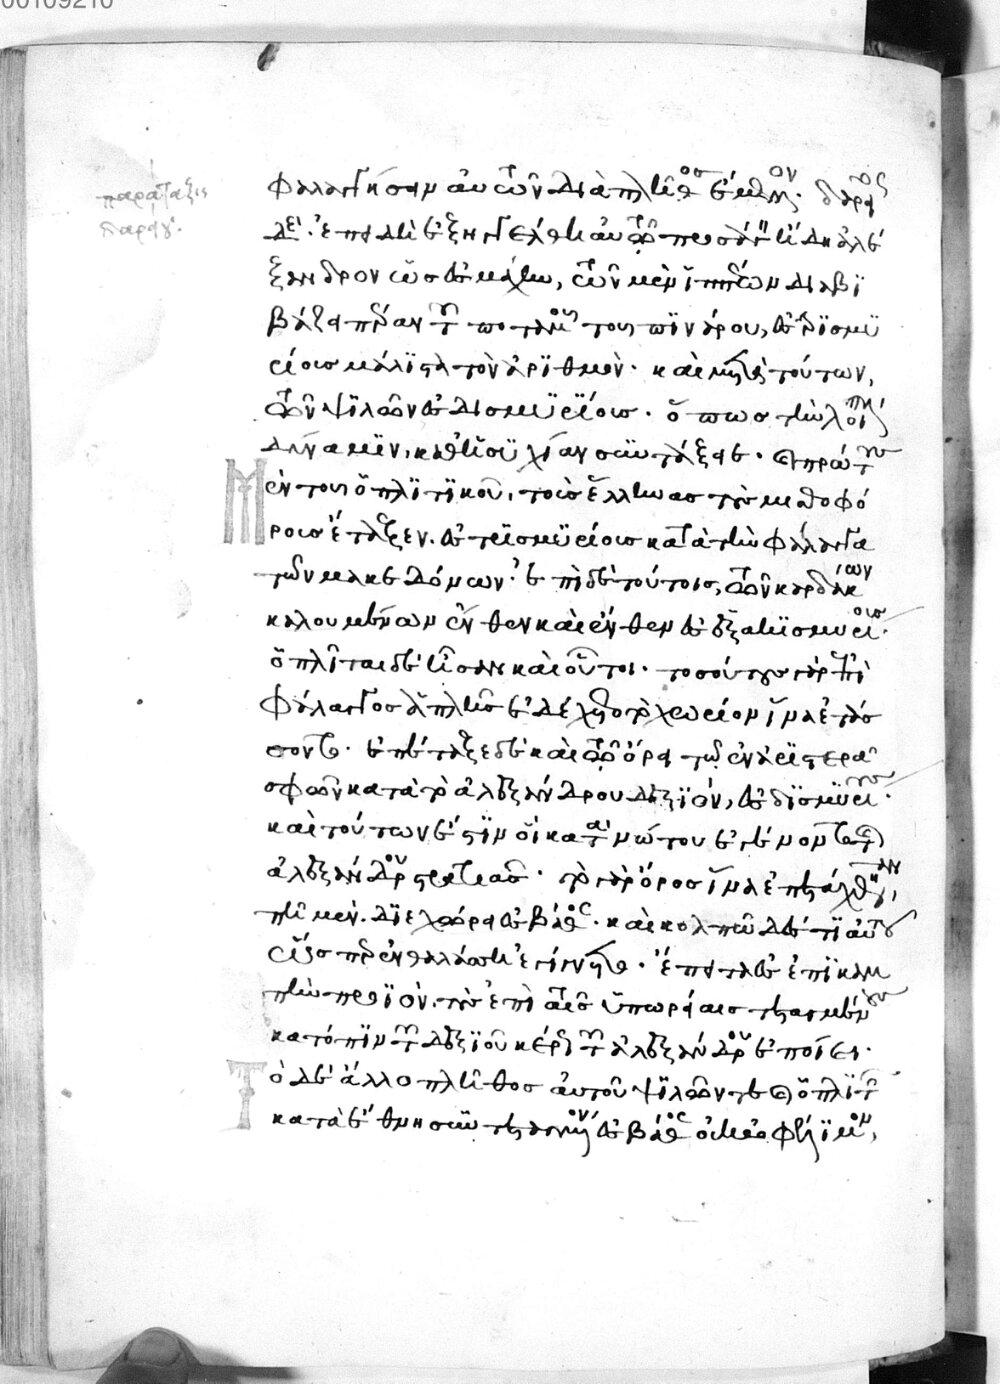 παράταξις
δαρείου
αὐτῶν διὰ πλῆθος δαρεῖος
δὲ· ἐπειδὴ ἐξηγγέλθη αὐτῶ προσάγων ἤδη ἀλέ
ξανδρον ὡς ἐς μάχην, τῶν μὲν ἱππέων διαβϊ
βάζει πέραν τοῦ ποταμοῦ τοῦ πϊνάρου, ἐς τρϊσμυ
ρίους μάλϊστα τὸν ἀρϊθμὸν· καὶ μετὰ τούτων,
τῶν ψϊλῶν ἐς δισμυρΐους· ὅπως τὴν λοιπὴν
δύναμϊν, καθ ἡσυχίαν συντάξειε· καὶ πρώτους
Μὲν τοῦ ὁπλϊτϊκοῦ, τοὺς ἕλληνας τοὺς μισθοφό
ρους ἔταξεν. ἐς τρϊσμυρίους κατὰ τὴν φάλαγγα
τῶν μακεδόνων· ἐπὶ δὲ τούτοις, τῶν καρδάκων
καλουμένων ἔνθεν καὶ ἔνθεν ἐς ἑξακισμυρίους·
ὁπλῖται δὲ ἦσαν καὶ οὗτοι· τοσούτους γὰρ ἐπὶ
φάλαγγος ἁπλῆς ἐδέχετο τὸ χωρίον ἵνα ἐτάσ
σοντο· ἐπέταξε δὲ καὶ τῶ ὄρει τῶ ἐν ἀρϊστερᾶ
σφῶν κατὰ τὸ ἀλεξάνδρου δεξϊόν, ἐς δϊσμυρίους·
καὶ τούτων ἔστϊν οἳ κατὰ νώτου ἐγένοντο τῆς
ἀλεξάνδρου στρατιᾶς· τὸ γὰρ ὄρος ἵνα ἐπετάχθησαν,
πῆ μὲν. διεχώρει ἐς βάθος· καὶ κολπῶδές τϊ αὐτοῦ
ὥσπερ ἐν θαλάσση ἐγίγνετο· ἔπειτα ἐς ἐπϊκαμ
πὴν προϊὸν. τοὺς ἐπὶ ταῖς ὑπωρείαις τεταγμένους
κατόπϊν τοῦ δεξϊοῦ κέρως τοῦ ἀλεξάνδρου ἐποίει·
Τὸ δὲ ἄλλο πλῆθος αὐτοῦ ψϊλῶν τε καὶ ὁπλϊτῶν
κατὰ ἔθνη συντεταγμένον ἐς βάθος οὐκ ὠφέλϊμον,